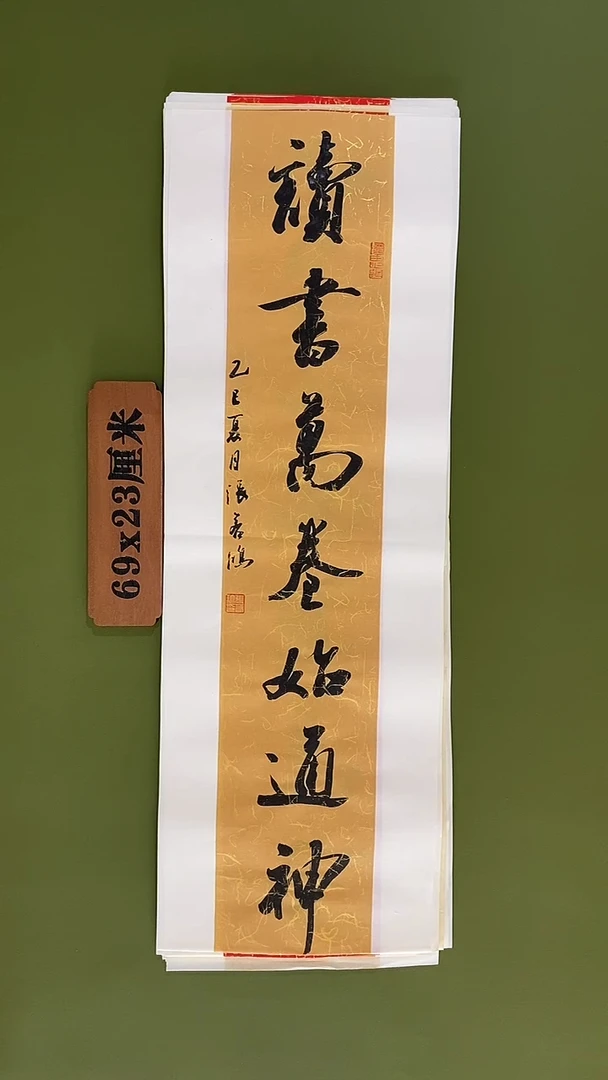 讀書萬卷始通神
乙巳夏月張若鴻
69x23厘米